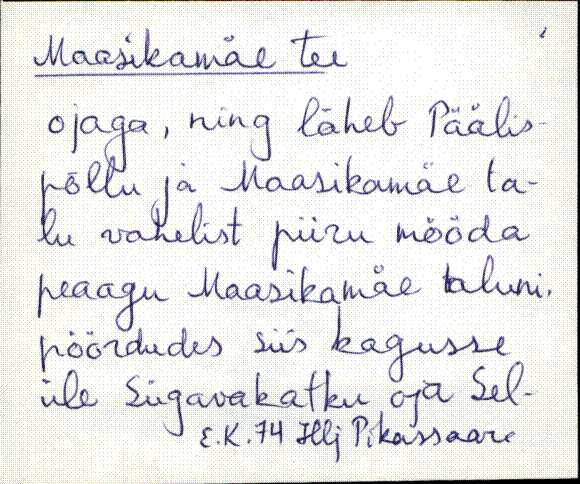 Maasikamäe tee
ojaga, ning läheb Päälis-
põllu ja Maasikamäe ta-
lu vahelist piiru mööda
peaagu Maasikamäe taluni,
pöördudes siis kagusse
üle Sügavakatku oja Sel-
E.K. 74 Illj Pikassaare